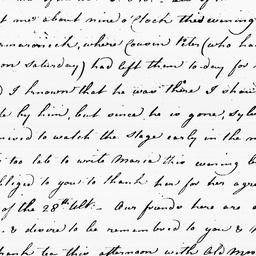 t me about nine o'Clock this evening
where Cousin Peter (who ha
on Saturday) had left them to-day for
d I known that he was there I shou
te by him, but since he is gone, Syl
mised to watch the Stage early in the m
too late to write Maria this evening b
bliged to you to thank her for her agre
of the 28th Ult. - Our friends here are a
& desire to be remembered to you &
thank tea this afternoon with Old Mrs